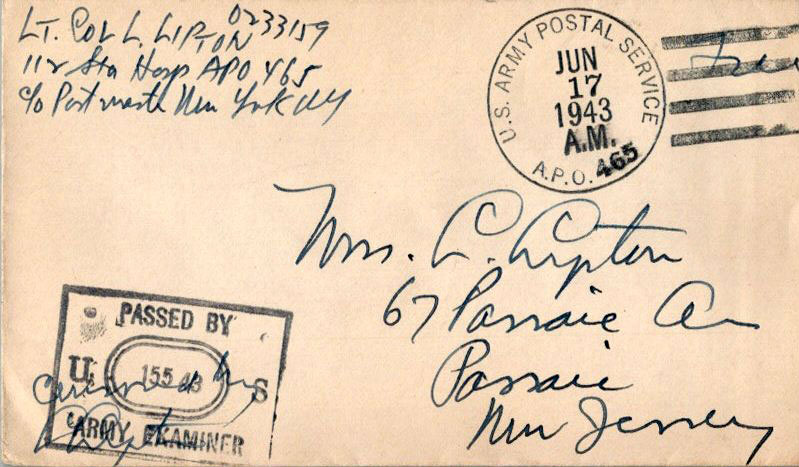 Lt. Col L. Lipton 0233159
112 Sta Hosp APO 465
c/o Postmaster New York NY
U.S. ARMY POSTAL SERVICE
JUN
17
1943
A.M.
A.P.O. 465
Free
Mrs. L. Lipton
67 Passaic Av
Passaic
New Jersey
PASSED BY
U 15543 S
ARMY EXAMINER
Censored by
L Lipton